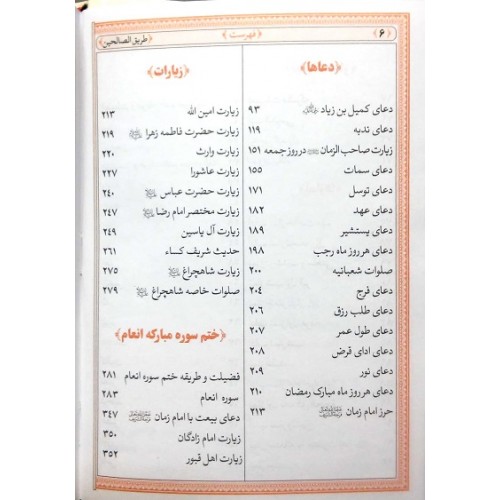 ﴿۶﴾ ﴿فهرست﴾ ﴿طریق الصالحین﴾
﴿دعاها﴾
دعای کمیل بن زیاد ۹۳
دعای ندبه ۱۱۹
زیارت صاحب الزمان در روز جمعه ۱۵۱
دعای سمات ۱۵۵
دعای توسل ۱۷۱
دعای عهد ۱۸۲
دعای یستشیر ۱۸۹
دعای هر روز ماه رجب ۱۹۸
صلوات شعبانیه ۲۰۰
دعای فرج ۲۰۴
دعای طلب رزق ۲۰۶
دعای طول عمر ۲۰۷
دعای ادای قرض ۲۰۸
دعای نور ۲۰۹
دعای هر روز ماه مبارک رمضان ۲۱۰
حرز امام زمان ۲۱۳
﴿زیارات﴾
زیارت امین الله ۲۱۳
زیارت حضرت فاطمه زهرا ۲۱۹
زیارت وارث ۲۲۰
زیارت عاشورا ۲۲۷
زیارت حضرت عباس ۲۴۰
زیارت مختصر امام رضا ۲۴۷
زیارت آل یاسین ۲۴۹
حدیث شریف کساء ۲۶۱
زیارت شاهچراغ ۲۷۵
صلوات خاصه شاهچراغ ۲۷۹
﴿ختم سوره مبارکه انعام﴾
فضیلت و طریقه ختم سوره انعام ۲۸۱
سوره انعام ۲۸۳
دعای بیعت با امام زمان ۳۴۷
زیارت امام زادگان ۳۵۰
زیارت اهل قبور ۳۵۲